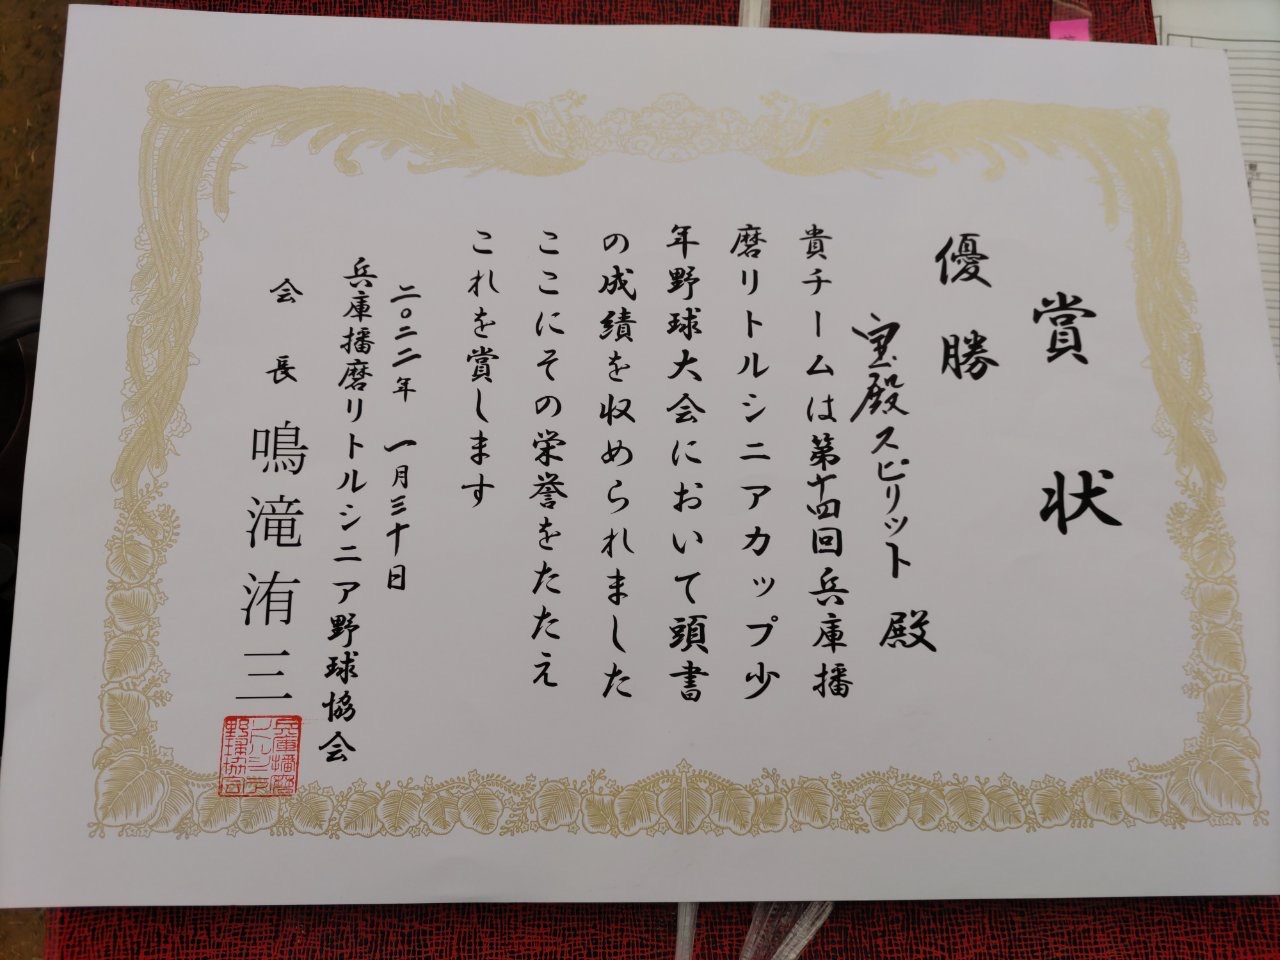 賞状
優勝
宝殿スピリット 殿
貴チームは第十四回兵庫播
磨リトルシニアカップ少
年野球大会において頭書
の成績を収められました
ここにその栄誉をたたえ
これを賞します
二〇二二年 一月三十日
兵庫播磨リトルシニア野球協会
会長 鳴滝洧三
兵庫播磨
リトルシニア
野球協会